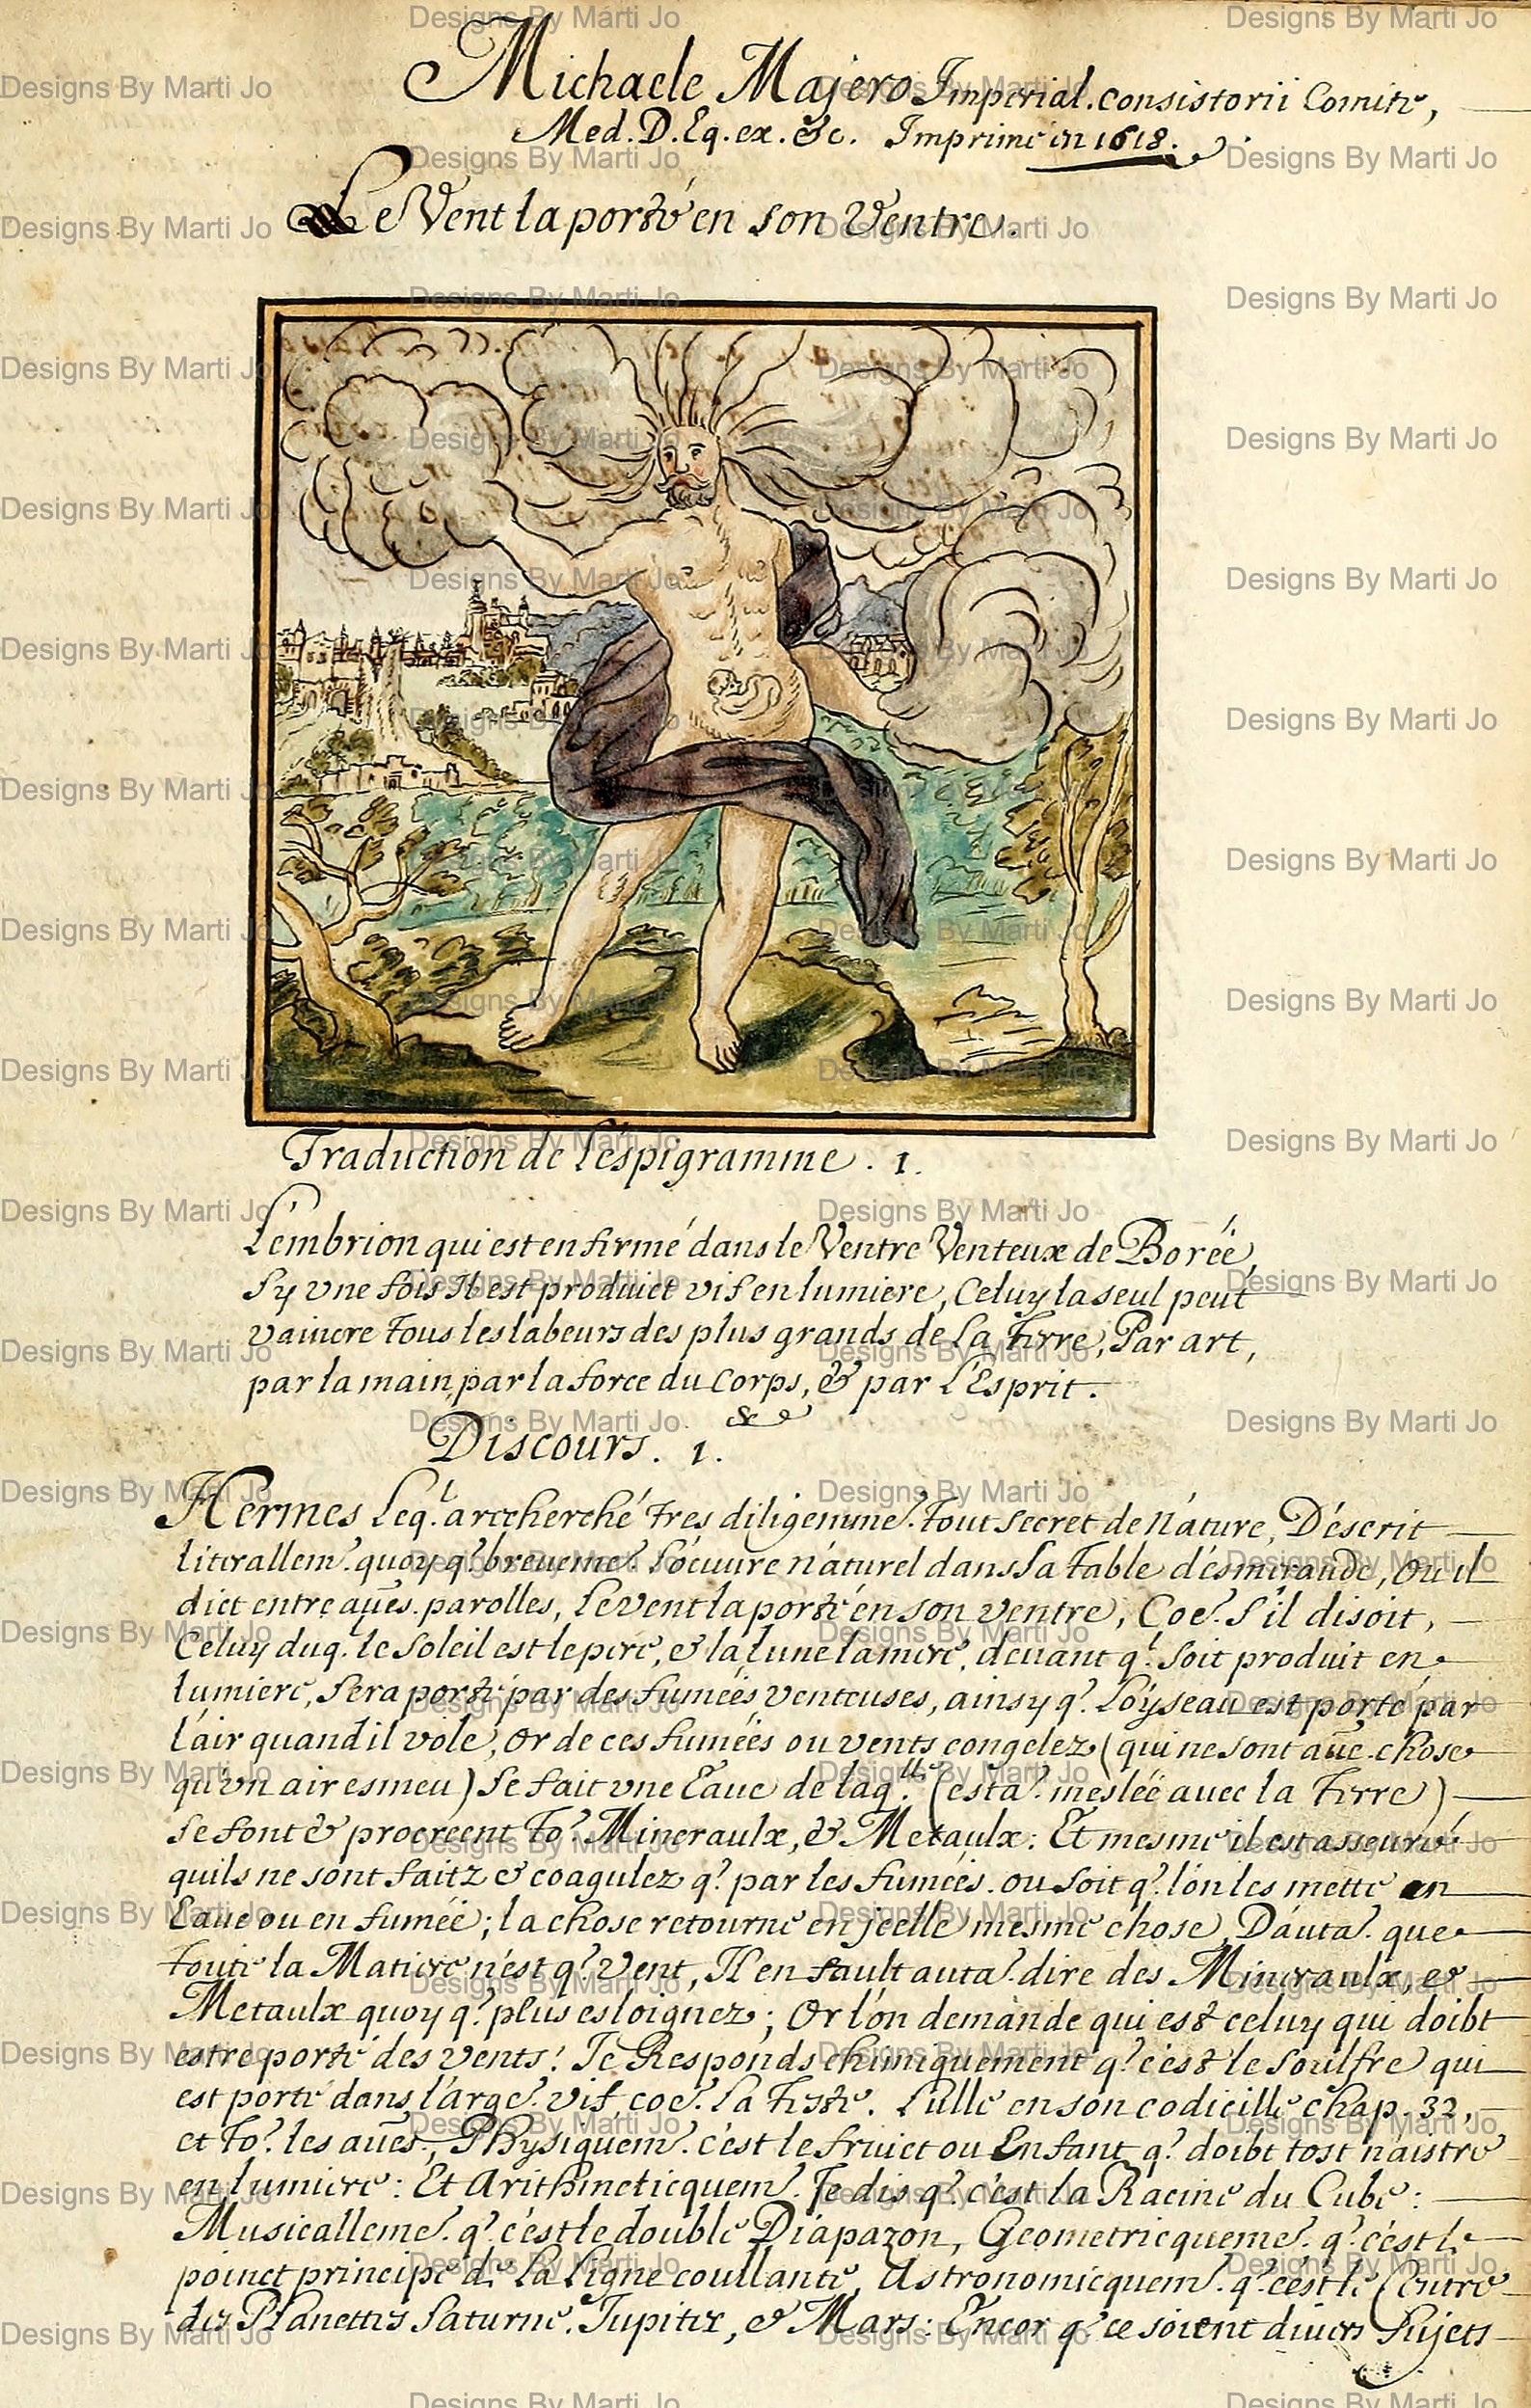 Michaele Majero Imperial. Consistorii Comite,
Med. D. Eq. ex. &c. Imprimé en 1618.
Le Vent la porté en son Ventre.
Traduction de l'éspigramme. 1.
L'émbrion qui est enfirmé dans le Ventre Venteux de Borée,
Sy vne fois Il est produict vif en lumiere, Celuy la seul peut
vaincre tous les labeurs des plus grands de la Terre, Par art,
par la main, par la force du Corps, & par l'Esprit.
Discours. 1.
Hermes leq.l a recherché tres diligemme.t tout secret de náture, Déscrit
litterallem.t quoy q.e breueme.t l'oéuure náturel dans sa Table d'ésmeraude, ou il
dict entre aūes. parolles, le vent la porté en son ventre, Coe.' s'il disoit,
Celuy duq. le soleil est le pere, & la lune la mere, deuant q.l soit produit en
lumiere, sera porté par des fumeés venteuses, ainsy q.e l'oyseau est porté par
l'air quand il vole, or de ces fumeés ou vents congelez (qui ne sont aūe. chose
qu'vn air esmeu) se fait vne Eaue de laq.lle (esta.t meslée auec la Terre)
se font & procreent to.' Mineraulx, & Metaulx: Et mesme il est asseuré
quils ne sont faitz & coagulez q.' par les fumeés. ou soit q.' l'ón les mette en
Eaue ou en fumée; la chose retourne en jcelle mesme chose, D'áuta.t que
toute la Matiere n'ést q.' vent, Il en fault auta.t dire des Mineraulx, &
Metaulx quoy q.' plus esloignez; Or l'ón demánde qui est celuy qui doibt
estre porté des vents! Je Responds chimiquement q.' c'ést le soulfre qui
est porté dans l'árge.t vif, coe.' la Teste. Lulle en son codicille chap. 32,
et to.' les aūes., Physiquem.t c'ést le fruict ou Enfant q.' doibt tost náistre
en lumiere: Et Arithmeticquem.t Je dis q.' c'ést la Racine du Cube:
Musicalleme.t q.' c'ést le double Diápazon, Geometricqueme.t q.' c'ést le
poinct principe de la ligne coullante, Astronomicquem.t q.' c'ést le Centre
des Planettes Saturne, Jupiter, & Mars: Encor q.' ce soient diuers Sujets
Designs By Marti Jo